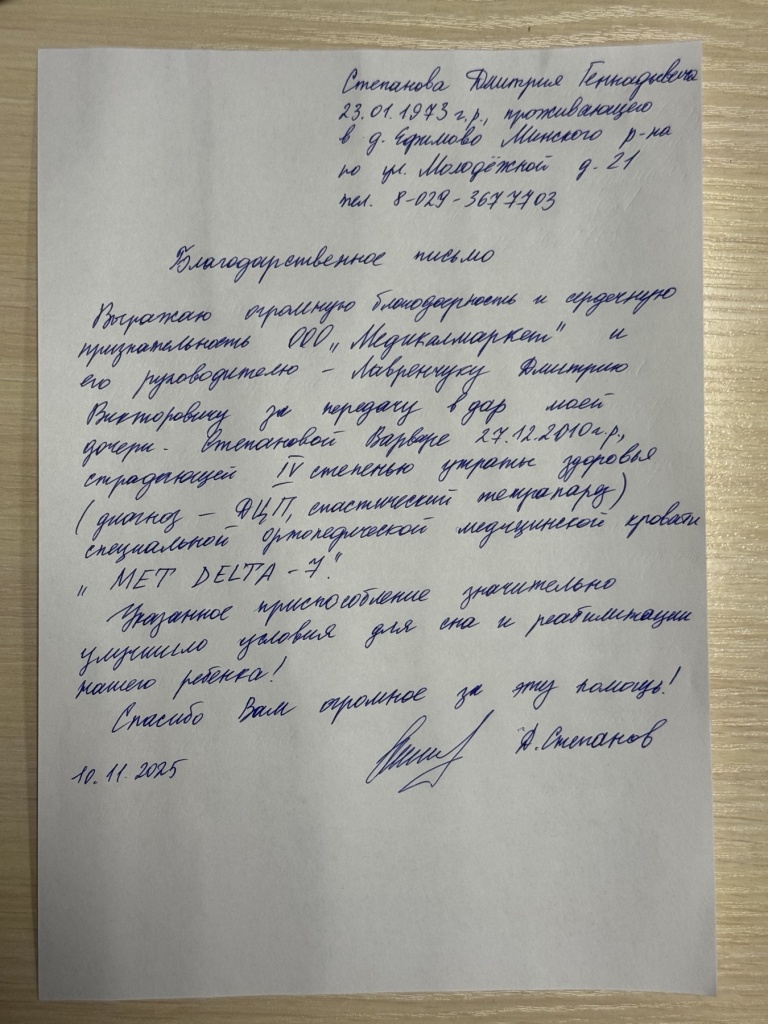 Степанова Дмитрия Геннадьевича
23.01.1973 г.р., проживающего
в д. Ефимово Минского р-на
по ул. Молодёжной д. 21
тел. 8-029-3677703
Благодарственное письмо
Выражаю огромную благодарность и сердечную
признательность ООО „Медикалмаркет" и
его руководителю – Лавренчуку Дмитрию
Викторовичу за передачу в дар моей
дочери - Степановой Варваре 27.12.2010 г.р.,
страдающей IV степенью утраты здоровья
(диагноз – ДЦП, спастический тетрапарез)
специальной ортопедической медицинской кровати
„MET DELTA-7".
Указанное приспособление значительно
улучшило условия для сна и реабилитации
нашего ребенка!
Спасибо Вам огромное за эту помощь!
10.11.2025 Д. Степанов